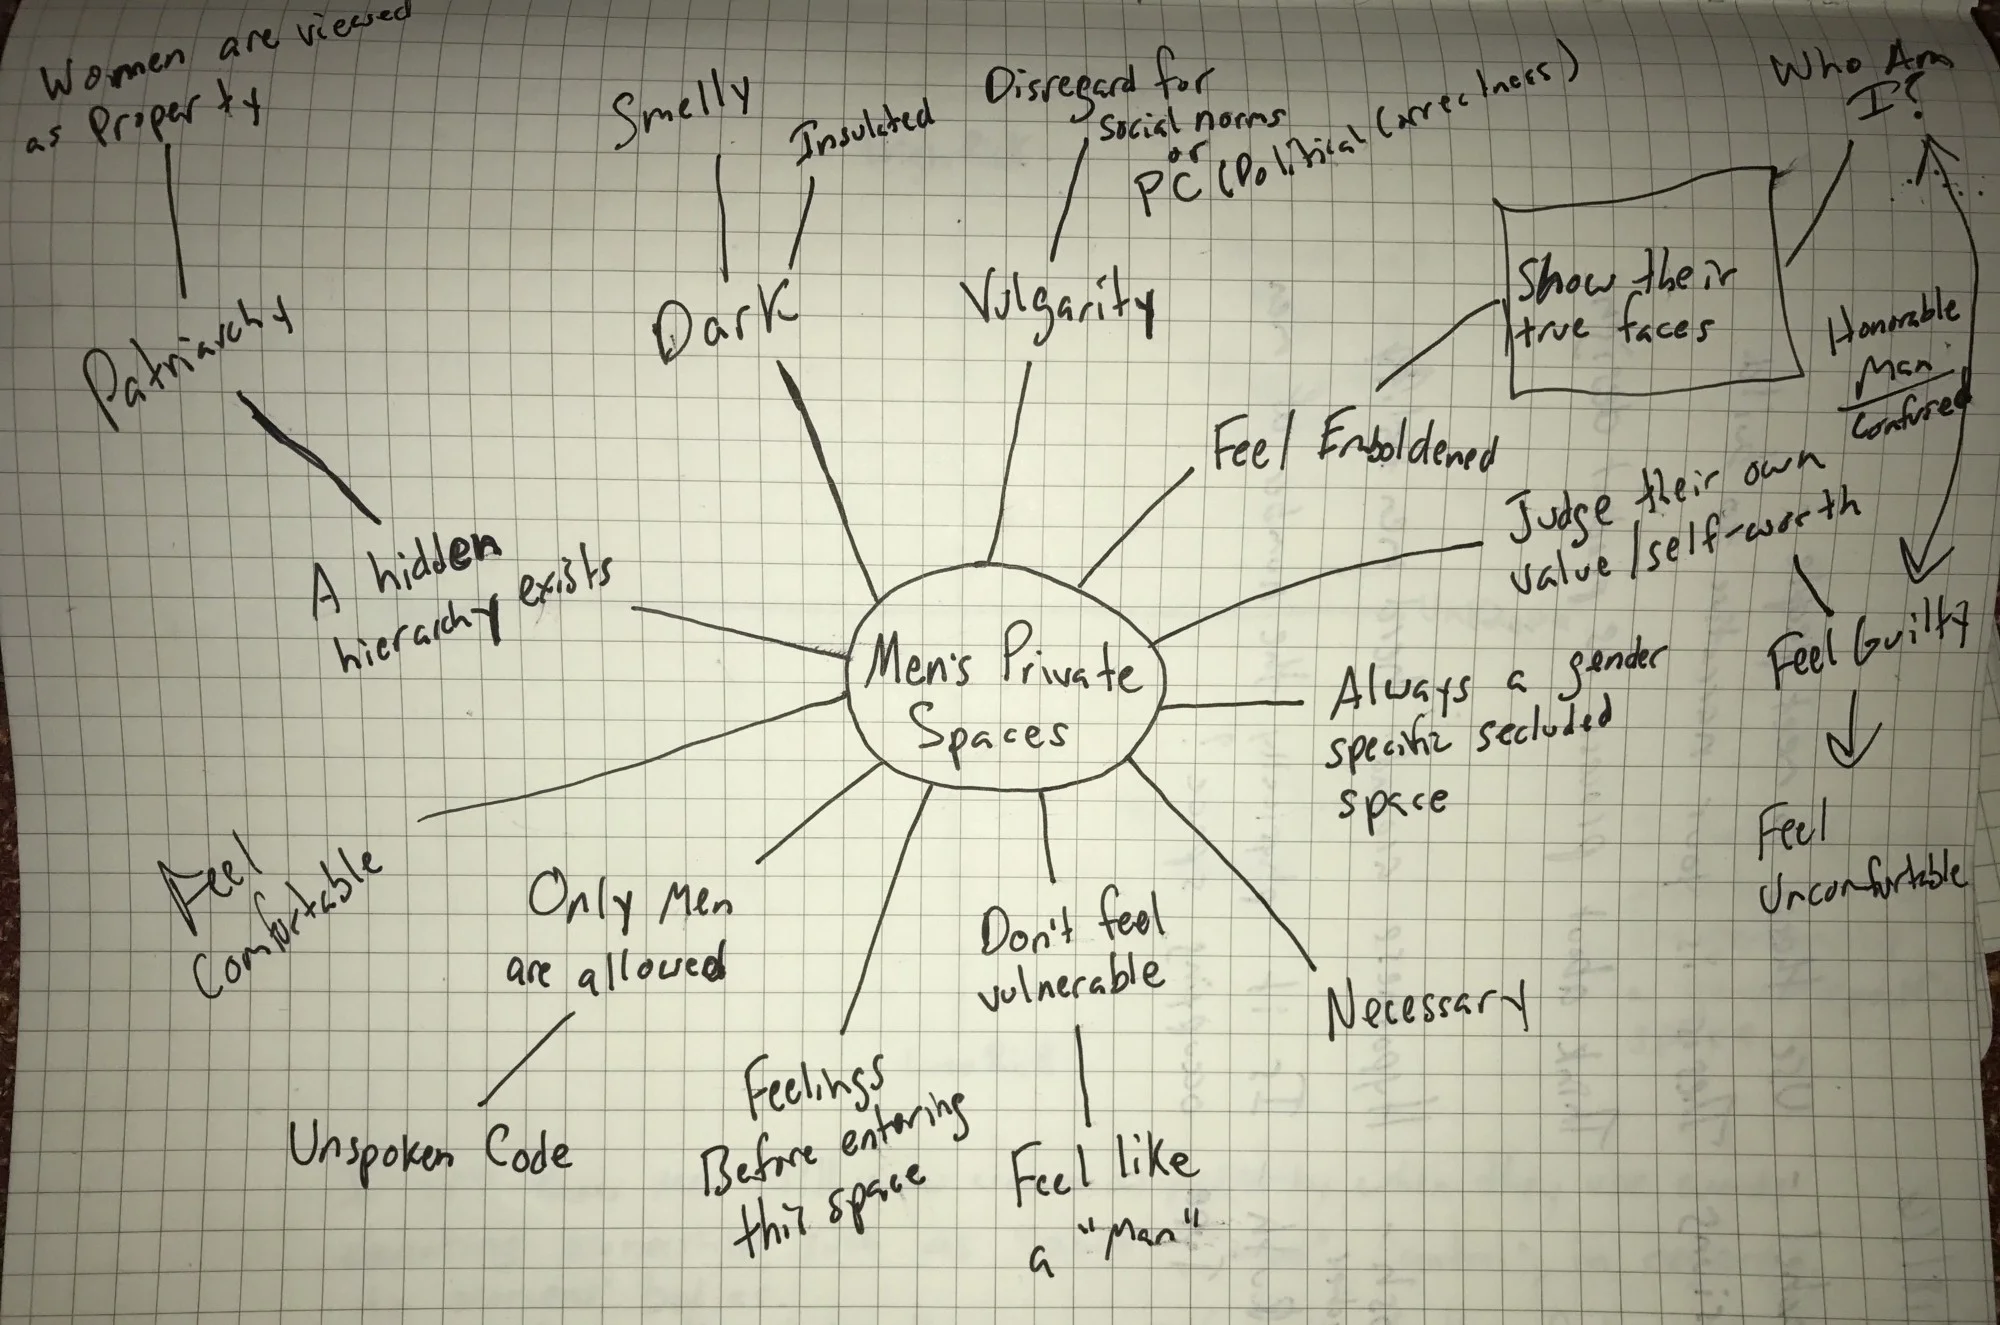 Women are viewed
as Property
Smelly
Insulated
Disregard for
social norms
or
PC (Political Correctness)
Who Am
I?
Patriarchy
Dark
Vulgarity
Show their
true faces
Honorable
Man
Confused
Feel Emboldened
Judge their own
value/self-worth
A hidden
hierarchy exists
Men's Private
Spaces
Feel Guilty
Always a gender
specific secluded
space
Feel
Uncomfortable
Feel
Comfortable
Only Men
are allowed
Don't feel
vulnerable
Necessary
Unspoken Code
Feelings
Before entering
this space
Feel like
a "Man"